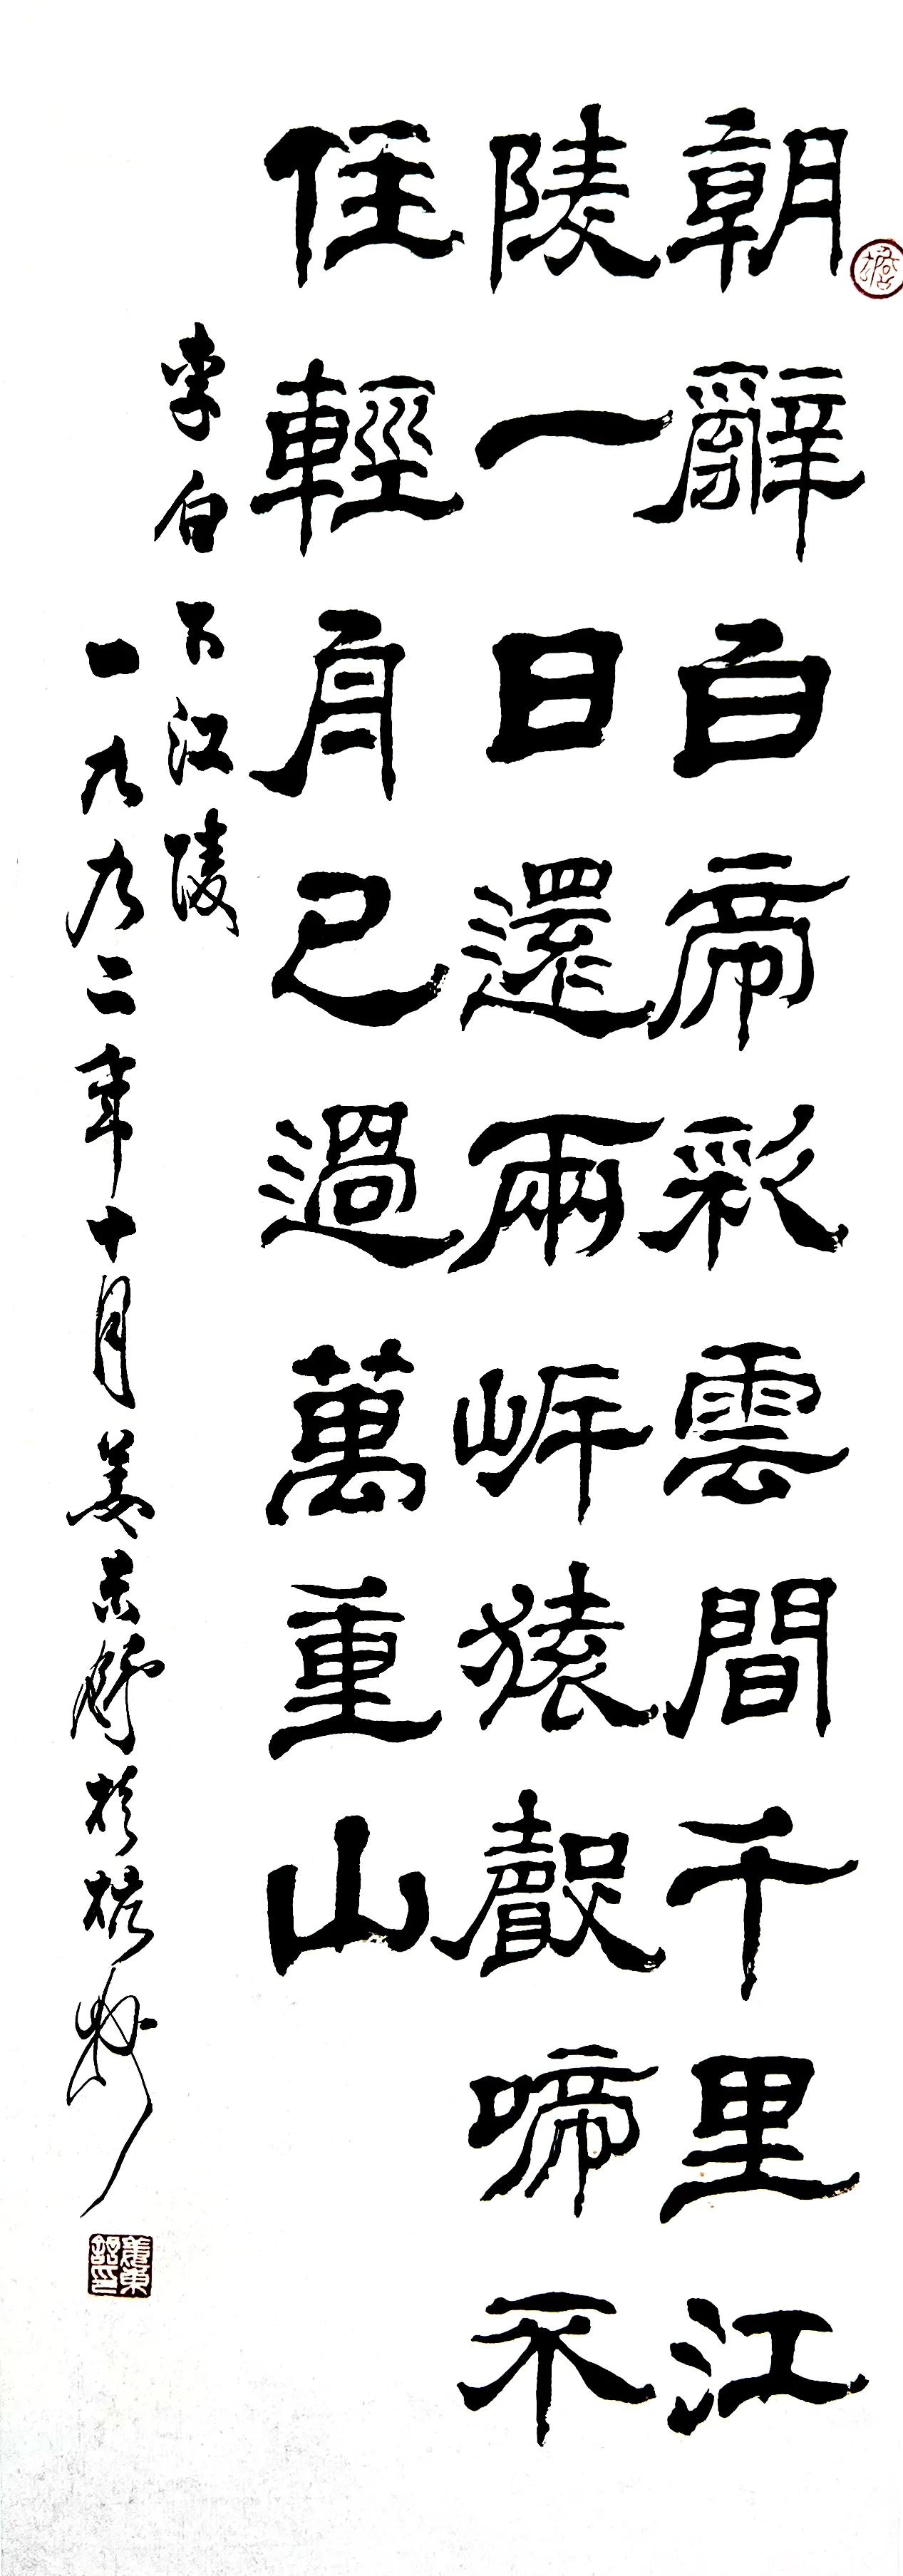 朝辭白帝彩雲間千里江
陵一日還兩岸猿聲啼不
住輕舟已過萬重山
李白下江陵
一九九二年十月姜东舒於杭州
姜東舒印